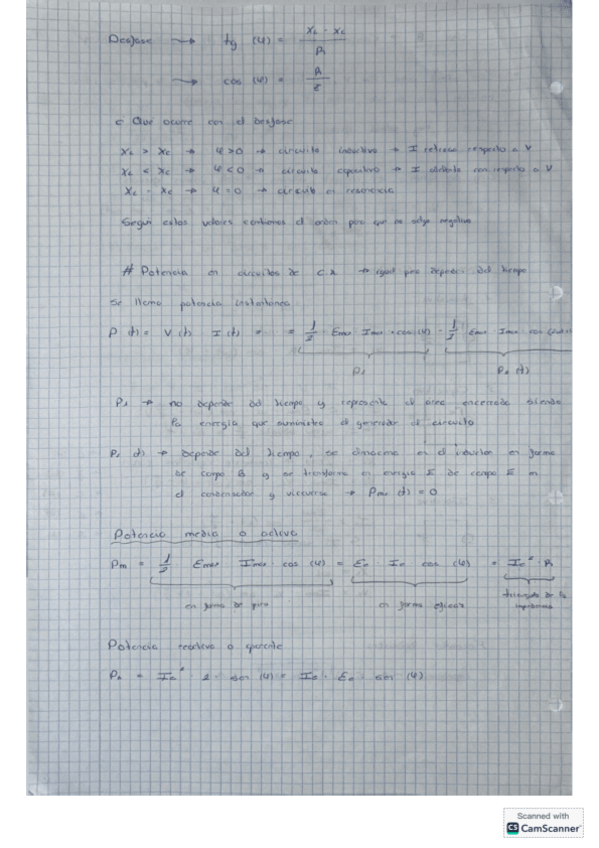 Desfase → tg (φ) = XL - XC / R
→ cos (φ) = R / Z
¿ Que ocurre con el desfase
XL > XC → φ > 0 → circuito inductivo → I retrasa respecto a V
XL < XC → φ < 0 → circuito capacitivo → I adelanta con respecto a V
XL = XC → φ = 0 → circuito en resonancia
Segun estos valores cambiamos el orden para que no salga negativo
# Potencia en circuitos de C.A → igual pero depende del tiempo
Se llama potencia instantánea
P (t) = V (t) I (t) = = 1/2 Emax · Imax · cos (φ) - 1/2 Emax · Imax · cos
P1 P2 (t)
P1 → no depende del tiempo y representa el area encerrada siendo
la energía que suministra el generador al circuito
P2 (t) → Depende del tiempo, se almacena en el inductor en forma
de campo B y se transforma en energía E de campo E en
el condensador y viceversa → (t) = 0
Potencia media o activa
Pm = 1/2 Emax Imax · cos (φ) = Ee · Ie cos (φ) = Ie² · R
en forma de pico en forma eficaz triangulo de la
impedancia
Potencia reactiva o aparente
= Ie² · Z · sen (φ) = Ie · Ee · sen (φ)
Scanned with
CS CamScanner